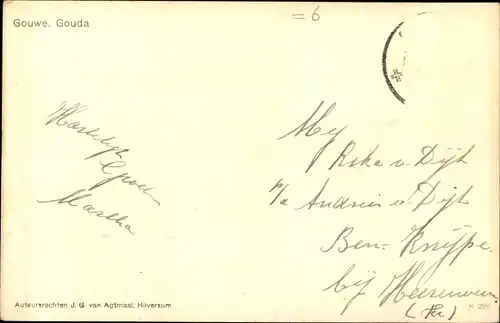 Gouwe, Gouda
= 6
Hartelijk
Groet
Martha
Mej
Rika v. Dijk
p/a Andries v Dijk
Ben= Knijpe
bij Heerenveen
(Fr.)
Auteursrechten J. G. van Agtmaal, Hilversum